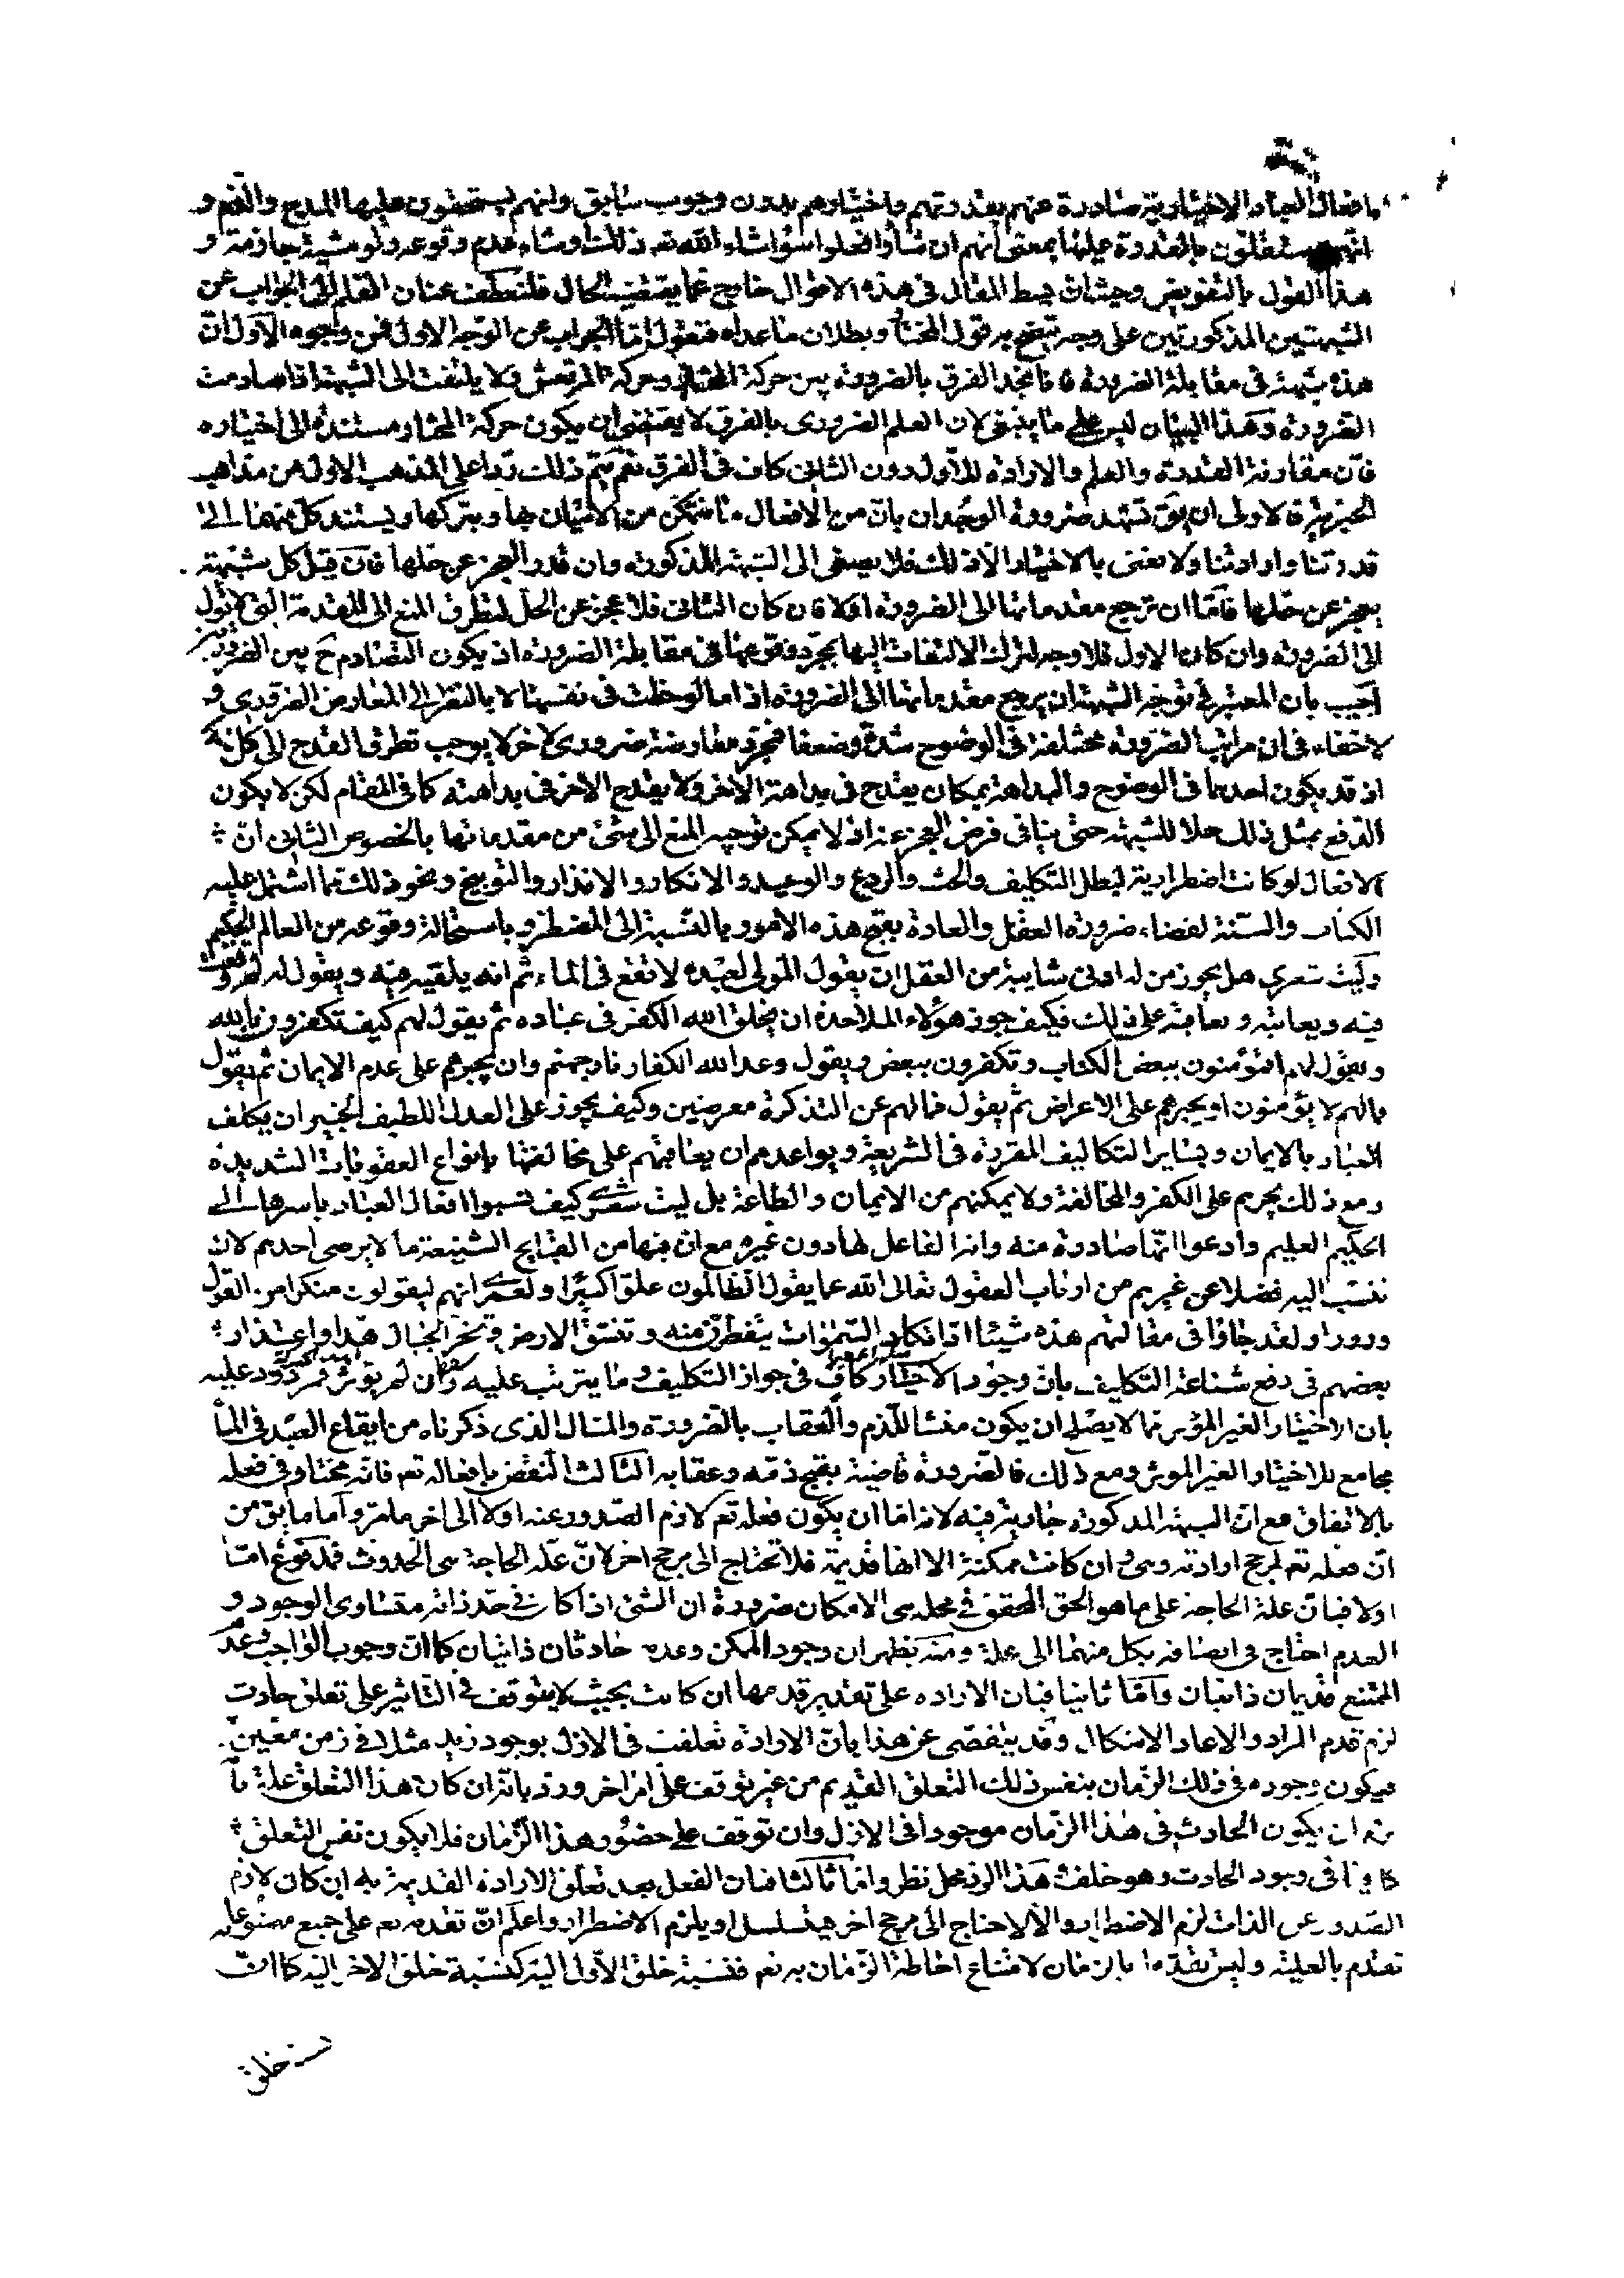 افعال العباد الاختيارية صادرة عنهم بقدرتهم واختيارهم بدون وجوب سابق وانهم يستحقون عليها المدح والذم و
انهم مستقلون بالقدرة عليها بمعنى انهم ان شاؤا فعلوا سواء شاء الله تعه ذلك او شاء عدم وقوعه ولو مشية جازمة و
هذا القول بالتفويض وحيث ان بسط المقال في هذه الاقوال خارج عما يقتضيه الحال فلنعطف عنان القلم الى الجواب عن
الشبهتين المذكورتين على وجه يتضح به قول المختار وبطلان ما عداه فنقول اما الجواب عن الوجه الاول فمن وجوه الاول ان
هذه شبهة في مقابلة الضرورة فانا نجد الفرق بالضرورة بين حركة المختار وحركة المرتعش ولا يلتفت الى الشبهة اذا صادمت
الضرورة وهذا البيان ليس على ما ينبغى لان العلم الضرورى بالفرق لا يقتضى ان يكون حركة المختار مستندة الى اختياره
فان مقارنة القدرة والعلم والارادة للاول دون الثانى كاف في الفرق نعم يتم ذلك ردا على المذهب الاول من مذاهب
الجبرية فالاولى ان يق تشهد ضرورة الوجدان بان من الافعال ما نتمكن من الاتيان بها وبتركها ويستند كل منهما الى
قدرتنا وارادتنا ولا نعنى بالاختيار الا ذلك فلا يصغى الى الشبهة المذكورة وان قدر العجز عن حلها فان قيل كل شبهة
يعجز عن حلها فاما ان ترجع مقدماتها الى الضرورة اولا فان كان الثانى فلا عجز عن الحل لتطرق المنع الى المقدمة التى لا تؤل
الى الضرورة وان كان الاول فلا وجه لترك الالتفات اليها بمجرد وقوعها في مقابلة الضرورة اذ يكون التصادم ح بين الضرورتين
اجيب بان المعتبر في توجه الشبهة ان يرجع مقدماتها الى الضرورة اذا ما لوحظت في نفسها لا بالنظر الى المعارض الضرورى و
لا خفاء في ان مراتب الضرورة مختلفة في الوضوح شدة وضعفا فمجرد معارضة ضرورى لاخر لا يوجب تطرق القدح الى كل منهما
اذ قد يكون احدهما في الوضوح والبداهة بمكان يقدح في بداهة الاخر ولا يقدح الاخر في بداهته كما في المقام لكن لا يكون
الدفع بمثل ذلك حلا للشبهة حتى ينافى فرض العجز عنه اذ لا يمكن توجيه المنع الى شئ من مقدماتها بالخصوص الثانى ان
الافعال لو كانت اضطرارية لبطل التكليف والحث والردع والوعيد والانكار والانذار والتوبيخ ونحو ذلك مما اشتمل عليه
الكتاب والسنة لقضاء ضرورة العقل والعادة بقبح هذه الامور بالنسبة الى المضطر وباستحالة وقوعه من العالم الحكيم
وليت شعري هل يجوز من له ادنى شايبة من العقل ان يقول المولى لعبده لا تقع في الماء ثم انه يلقيه فيه ويقول له لم وقعت
فيه ويعاتبه ويعاقبه على ذلك فكيف جوز هؤلاء الملاحدة ان يخلق الله الكفر في عباده ثم يقول لهم كيف تكفرون بالله
ويقول لهم افتؤمنون ببعض الكتاب وتكفرون ببعض ويقول وعد الله الكفار نار جهنم وان يجبرهم على عدم الايمان ثم يقول
مالهم لا يؤمنون او يجبرهم على الاعراض ثم يقول فمالهم عن التذكرة معرضين وكيف يجوز على العدل اللطيف الخبير ان يكلف
العباد بالايمان وبساير التكاليف المقررة في الشريعة ويواعدهم ان يعاقبهم على مخالفتها بانواع العقوبات الشديدة
ومع ذلك يجبرهم على الكفر والمخالفة ولا يمكنهم من الايمان والطاعة بل ليت شعري كيف نسبوا افعال العباد باسرها الى
الحكيم العليم وادعوا انها صادرة منه وانه الفاعل لها دون غيره مع ان فيها من القبايح الشنيعة ما لا يرضى احدهم لان
تنسب اليه فضلا عن غيرهم من ارباب العقول تعالى الله عما يقول الظالمون علوا كبيرا ولعمرى انهم ليقولون منكرا من القول
وزورا ولقد جاؤا في مقالتهم هذه شيئا ادا تكاد السموات يتفطرن منه وتنشق الارض وتخر الجبال هدا واعتذار
بعضهم في دفع شناعة التكليف بان وجود الاختيار كاف في جواز التكليف وما يترتب عليه وان لم يؤثر مردود عليه
بان الاختيار الغير المؤثر مما لا يصلح ان يكون منشا للذم والعقاب بالضرورة والمثال الذى ذكرناه من ايقاع العبد في الماء
مجامع للاختيار الغير المؤثر ومع ذلك فالضرورة قاضية بقبح ذمه وعقابه الثالث النقض بافعاله تعه فانه مختار في فعله
بالاتفاق مع ان الشبهة المذكورة جارية فيه لانه اما ان يكون فعله تعه لازم الصدور عنه اولا الى اخر ما مر واما ما يق من
ان فعله تعه لمرجح ارادته وهى وان كانت ممكنة الا انها قديمة فلا تحتاج الى مرجح اخر لان علة الحاجة هى الحدوث فمدفوع اما
اولا فبان علة الحاجة على ما هو الحق المحقق في محله هى الامكان ضرورة ان الشئ اذا كان في حد ذاته متساوى الوجود و
العدم احتاج في اتصافه بكل منهما الى علة ومنه يظهر ان وجود الممكن وعدمه حادثان ذاتيان كما ان وجوب الواجب وعدم
الممتنع قديمان ذاتيان واما ثانيا فبان الاراده على تقدير قدمها ان كانت بحيث لا يتوقف في التاثير على تعلق حادث
لزم قدم المراد والا عاد الاشكال وقد يتفصى عن هذا بان الارادة تعلقت في الازل بوجود زيد مثلا في زمن معين
فيكون وجوده في ذلك الزمان بنفس ذلك التعلق القديم من غير توقف على امر اخر ورد بانه ان كان هذا التعلق علة تا
مة ان يكون الحادث في هذا الزمان موجودا في الازل وان توقف على حضور هذا الزمان فلا يكون نفس التعلق
كافيا في وجود الحادث وهو خلف هذا الرد محل نظر واما ثالثا فبان الفعل بعد تعلق الارادة القديمة به ان كان لازم
الصدور عن الذات لزم الاضطرار والا لاحتاج الى مرجح اخر فيتسلسل او يلزم الاضطرار واعلم ان تقدمه تعه على جميع مصنوعاته
تقدم بالعلية وليس تقدما بالزمان لامتناع احاطة الزمان به تعه فنسبة خلق الاول اليه كنسبة خلق الاخر اليه كما ان
خلق